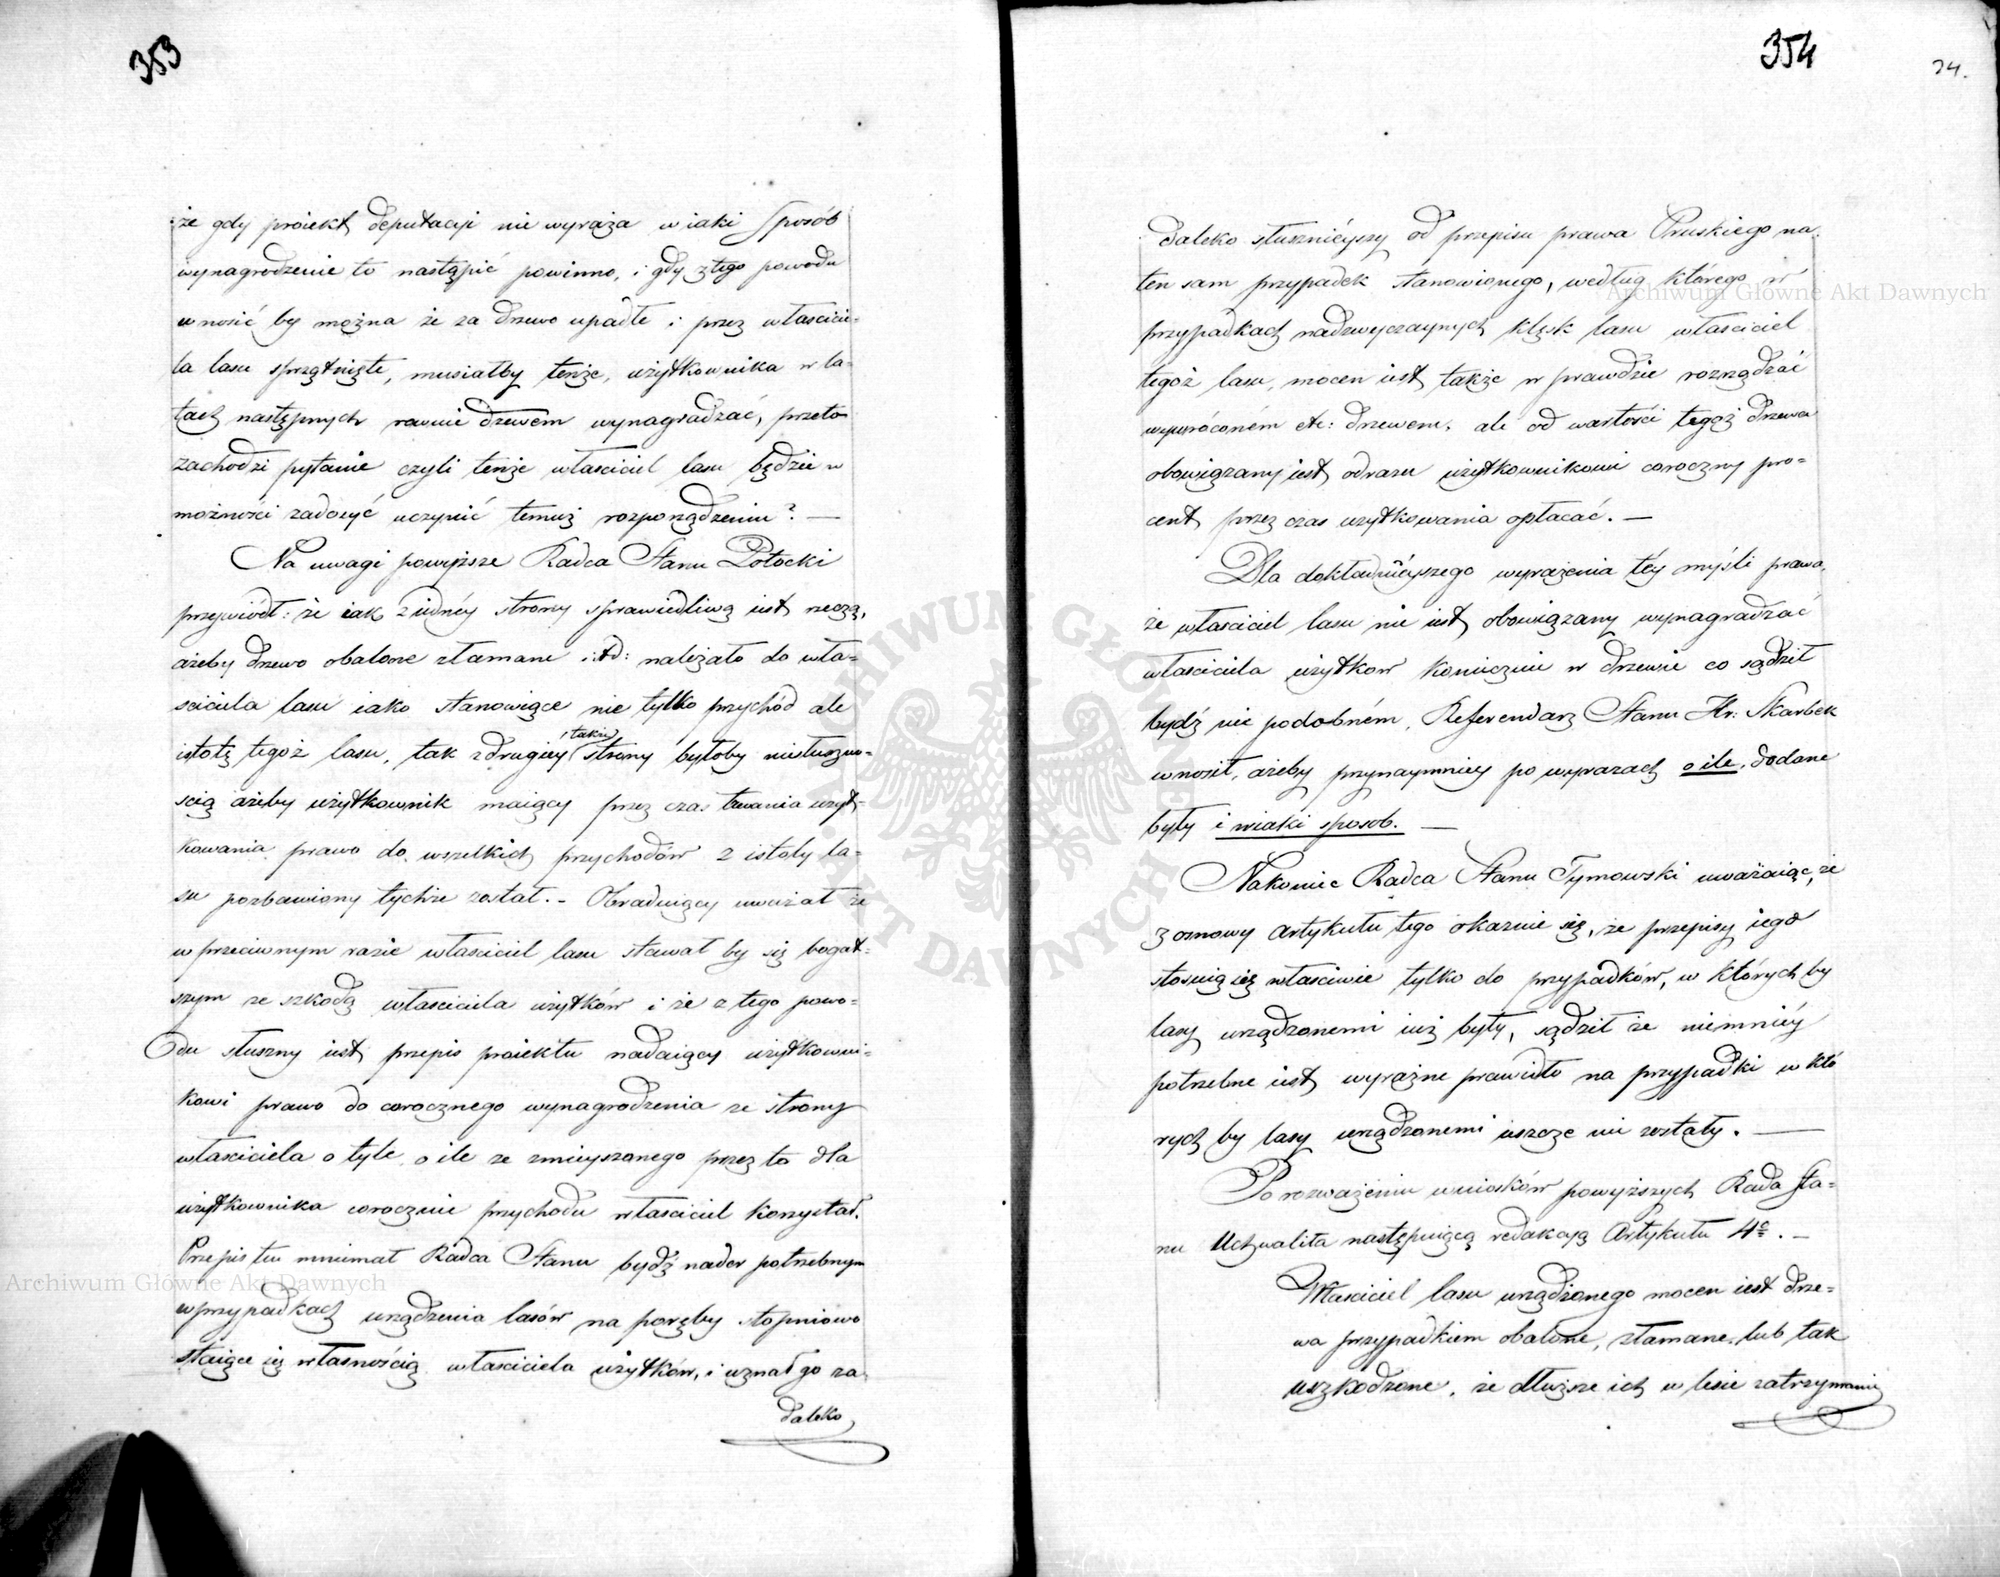 353
że gdy proiekt deputacyi nie wyraża w iaki sposób
wynagrodzenie to nastąpić powinno, i gdy z tego powodu
wnosić by można że za drzewo upadłe i przez właścicie-
la lasu sprzątnięte, musiałby tenże, użytkownika w la-
tach następnych rownie drzewem wynagradzać, przeto
zachodzi pytanie czyli tenże właściciel lasu będzie w
możności zadosyć uczynić temuż rozporządzeniu? —
Na uwagi powyższe Radca Stanu Potocki
przywiódł: że iak z iednéy strony sprawiedliwą iest rzeczą,
ażeby drzewo obalone złamane i.t.d: należało do wła-
ściciela lasu iako stanowiące nie tylko przychód ale
istotę tegoż lasu, tak z drugiey także strony byłoby niesłuszno-
ścią ażeby użytkownik maiący przez czas trwania użyt-
kowania prawo do wszelkich przychodów z istoty la-
su pozbawiony tychże został. – Obraduiący uważał że
w przeciwnym razie właściciel lasu stawał by się bogat-
szym ze szkodą właściciela użytków i że z tego powo-
du słuszny iest przepis proiektu nadaiący użytkowni-
kowi prawo do corocznego wynagrodzenia ze strony
właściciela o tyle, o ile ze zmieyszonego przez to dla
użytkownika corocznie przychodu właściciel korzystał.
Przepis tu mniemał Radca Stanu bydź nader potrzebnym
w przypadkach urządzenia lasów na poręby stopniowo
staiące się własnością właściciela użytków, i uznał go za
daleko
Archiwum Główne Akt Dawnych
354
24.
daleko słusznieyszy od przepisu prawa Pruskiego na
ten sam przypadek stanowionego, według którego w
Archiwum Główne Akt Dawnych
przypadkach nadzwyczaynych klęsk lasu właściciel
tegoż lasu, mocen iest także w prawdzie rozrządzać
wywróconém etc: drzewem, ale od wartości tegoż drzewa
obowiązany iest odrazu użytkownikowi coroczny pro-
cent przez czas użytkowania opłacać. —
Dla dokładnieyszego wyrażenia téy myśli prawa,
że właściciel lasu nie iest obowiązany wynagradzać
właściciela użytków koniecznie w drzewie co sądził
bydź nie podobném, Referendarz Stanu Hr: Skarbek
wnosił, ażeby przynaymniey po wyrazach o ile, dodane
były i w iaki sposob. —
Nakoniec Radca Stanu Tymowski uważaiąc, że
z osnowy Artykułu tego okazuie się, że przepisy iego
stosuią się właściwie tylko do przypadków, w których by
lasy urządzonemi iuż były, sądził że niemniéy
potrzebne iest wyraźne prawidło na przypadki w któ
rych by lasy urządzonemi ieszcze nie zostały. —
Po rozważeniu wniosków powyższych Rada Sta-
nu Uchwaliła następuiącą redakcyą Artykułu 4º. –
Właściciel lasu urządzonego mocen iest drze-
wa przypadkiem obalone, złamane, lub tak
uszkodzone, że dłuższe ich w lesie zatrzymanie
ARCHIWUM GŁÓWNE AKT DAWNYCH